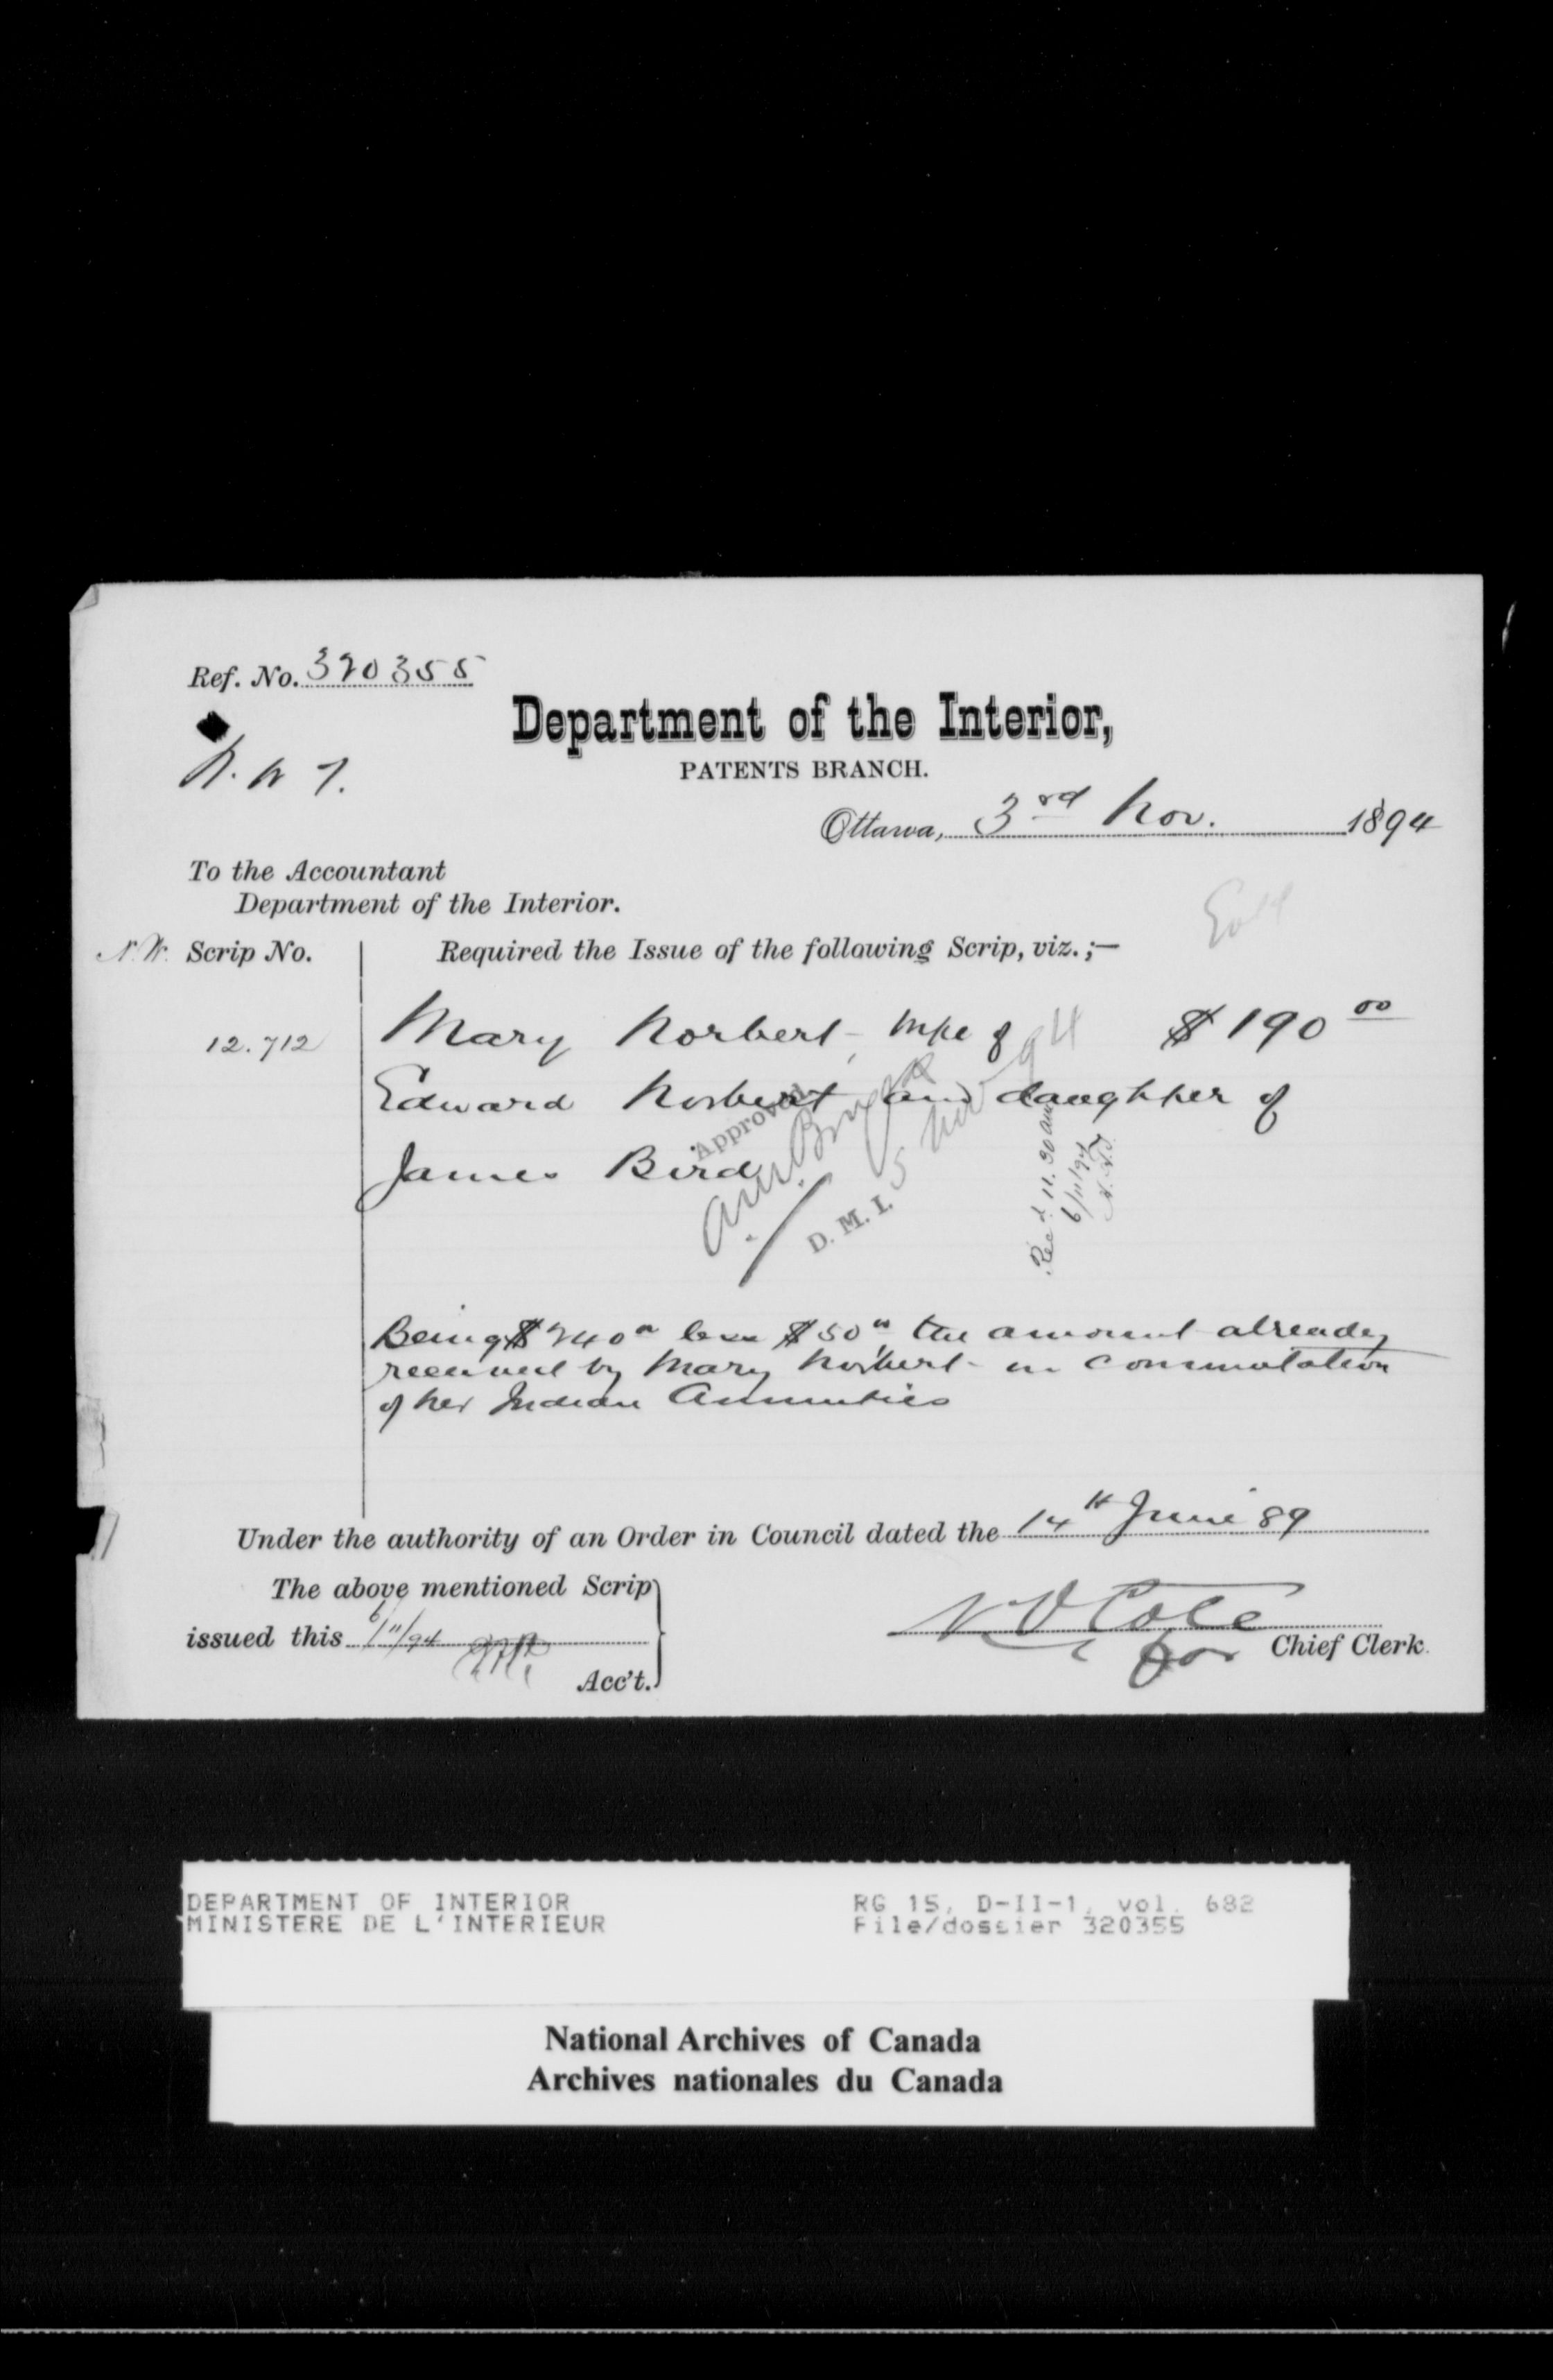 Ref. No. 320355
N. W T.
Department of the Interior,
PATENTS BRANCH.
Ottawa, 3rd Nov. 1894
To the Accountant
Department of the Interior.
N.W. Scrip No.
Required the Issue of the following Scrip, viz.;—
12.712
Mary Norbert, Wife of $190 00
Edward Norbert and daughter of
James Bird
Approved
D. M. I.
5 Nov 94
Rec'd. 11.30 am
6/11/94
Being $240 00 less $50 00, the amount already
received by Mary Norbert in commutation
of her Indian Annuities
Under the authority of an Order in Council dated the 14th June 89
The above mentioned Scrip
issued this 6/11/94
Acc't.
N O Cote
for Chief Clerk.
DEPARTMENT OF INTERIOR
MINISTERE DE L'INTERIEUR
RG 15, D-II-1, vol. 682
File/dossier 320355
National Archives of Canada
Archives nationales du Canada